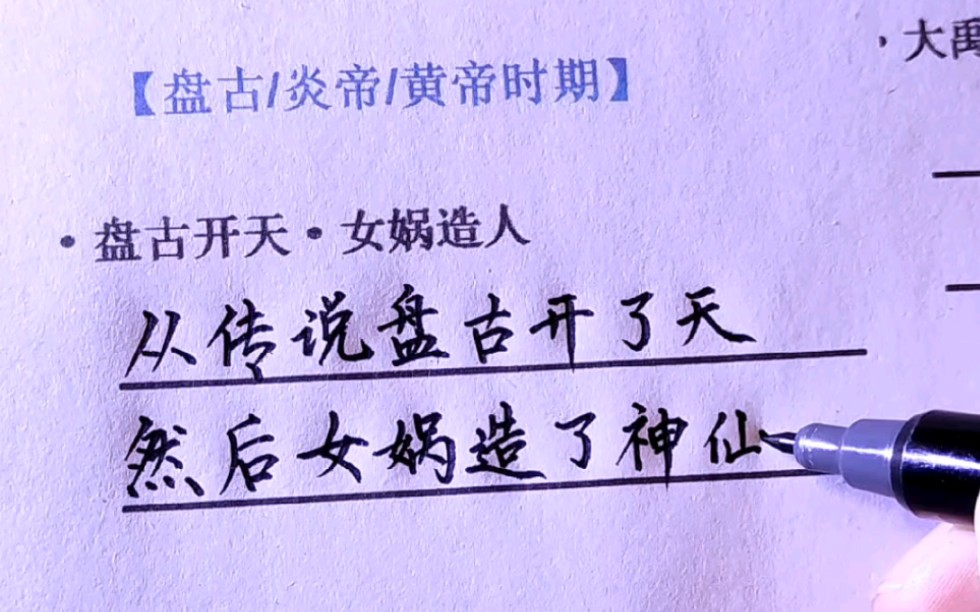 【盘古/炎帝/黄帝时期】
·盘古开天·女娲造人
从传说盘古开了天
然后女娲造了神仙
·大禹